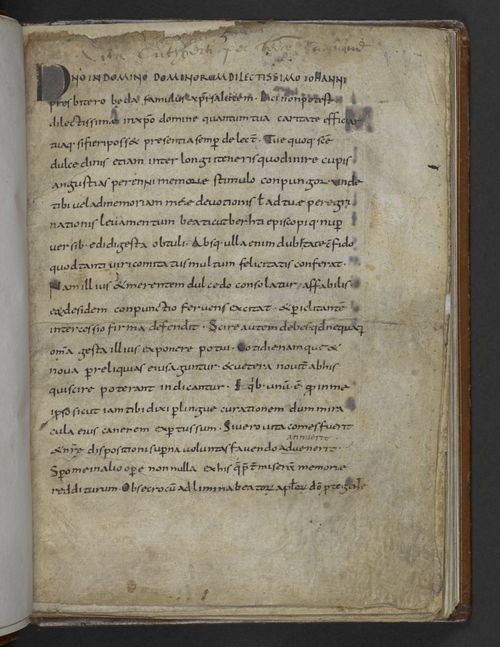 Vita Cuthberti per
DNO IN DOMINO DOMINORUM DILECTISSIMO IOHANNI
presbitero beda famulus xpi salutem. Dici non potest
dilectissime in xpo domine quantum tua caritate efficiar
tuaq. si fieri posse presentia semper delect. Tue quoq. scē
dulcedinis etiam inter longi itineris quod inire cupis
angustias perenni memorie stimulo conpungor unde
tibi vel ad memoriam mee devotionis ł ad tue peregri
nationis levamentum beati cutberhti episcopi q. nuper
versib. edidi gesta obtuli. Absq. ulla enim dubitatione fido
quod tanti viri comitatus multum felicitatis conferat.
Nam illius & merentem dulcedo consolatur, affabilis
& desidem conpunctio fervens excitat. & periclitantem
intercessio firma defendit. Scire autem debes qd nequaq
oma gesta illius exponere potui. Cotidie namque &
nova per reliquias eius aguntur. & vetera noviter ab his
qui scire poterant indicantur. E qb. unum ē q in me
ipso sicut iam tibi dixi per lingue curationem dum mira
cula eius canerem expertus sum. Si vero vita comes fuerit
annuerit
& nr̄e dispositioni superna voluntas favendo advenerit.
Spero me in alio opere nonnulla ex his q pret miseram memorie
redditurum. Obsecro cum ad limina beator aplor dō protegente